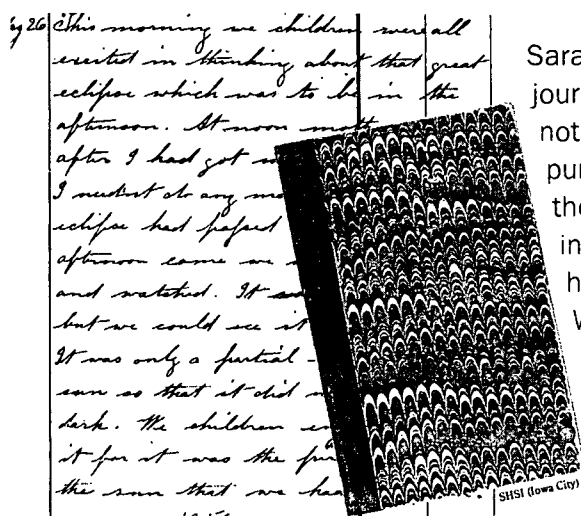 ug 26 This morning we children were all
excited in thinking about that great
eclipse which was to be in the
afternoon. At noon
after I had got
I needn't do any
eclipse had passed
afternoon came we
and watched. It
but we could see it
It was only a partial
sun so that it did
dark. We children
it for it was the
the sun that we
Sara
jour
not
pur
the
in
h
W
SHSI (Iowa City)